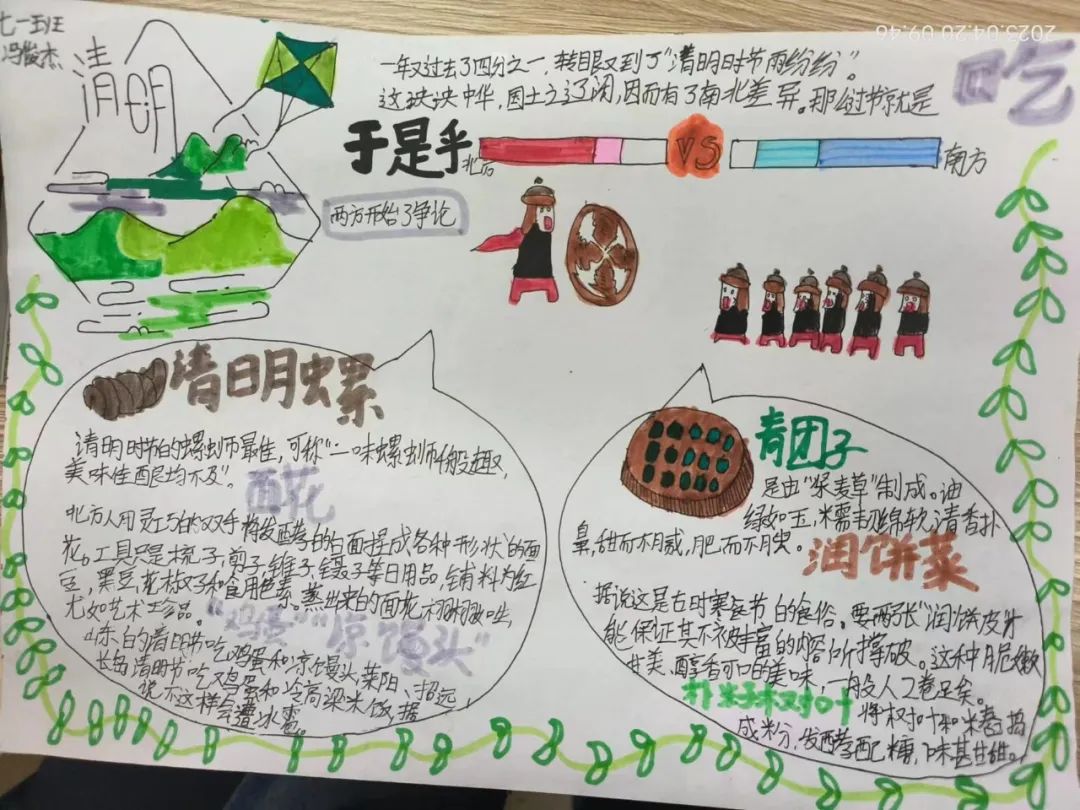 七一班
冯俊杰
清明
2023.04.20 09:46
一年又过去了四分之一，转眼又到了“清明时节雨纷纷”。
这泱泱中华，国土之辽阔，因而有了南北差异。那么过节就是
吃
于是乎
北方
VS
南方
两方开始了争论
清明螺
清明时节的螺蛳最佳，可称“一味螺蛳千般趣，
美味佳酿均不及”。
面花
北方人用灵巧的双手将发酵的白面捏成各种形状的面
花。工具只是梳子、剪子、锥子、镊子等日用品，辅料为红
豆，黑豆，花椒子和食用色素。蒸出来的面花栩栩如生，
尤如艺术珍品。
“鸡蛋”“凉馒头”
山东的清明节吃鸡蛋和凉馒头，莱阳、招远、
长岛清明节吃鸡蛋和冷高粱米饭，据
说不这样会遭冰雹。
青团子
是由“浆麦草”制成。油
绿如玉，糯韧绵软，清香扑
鼻，甜而不腻，肥而不腴。
润饼菜
据说这是古时寒食节的食俗。要两张“润饼皮”才
能保证其不被丰富的内容所撑破。这种脆嫩
甘美、醇香可口的美味，一般人2卷足矣。
朴籽朴树叶
将树叶和米舂捣
成粉，发酵配糖，味甚甘甜。